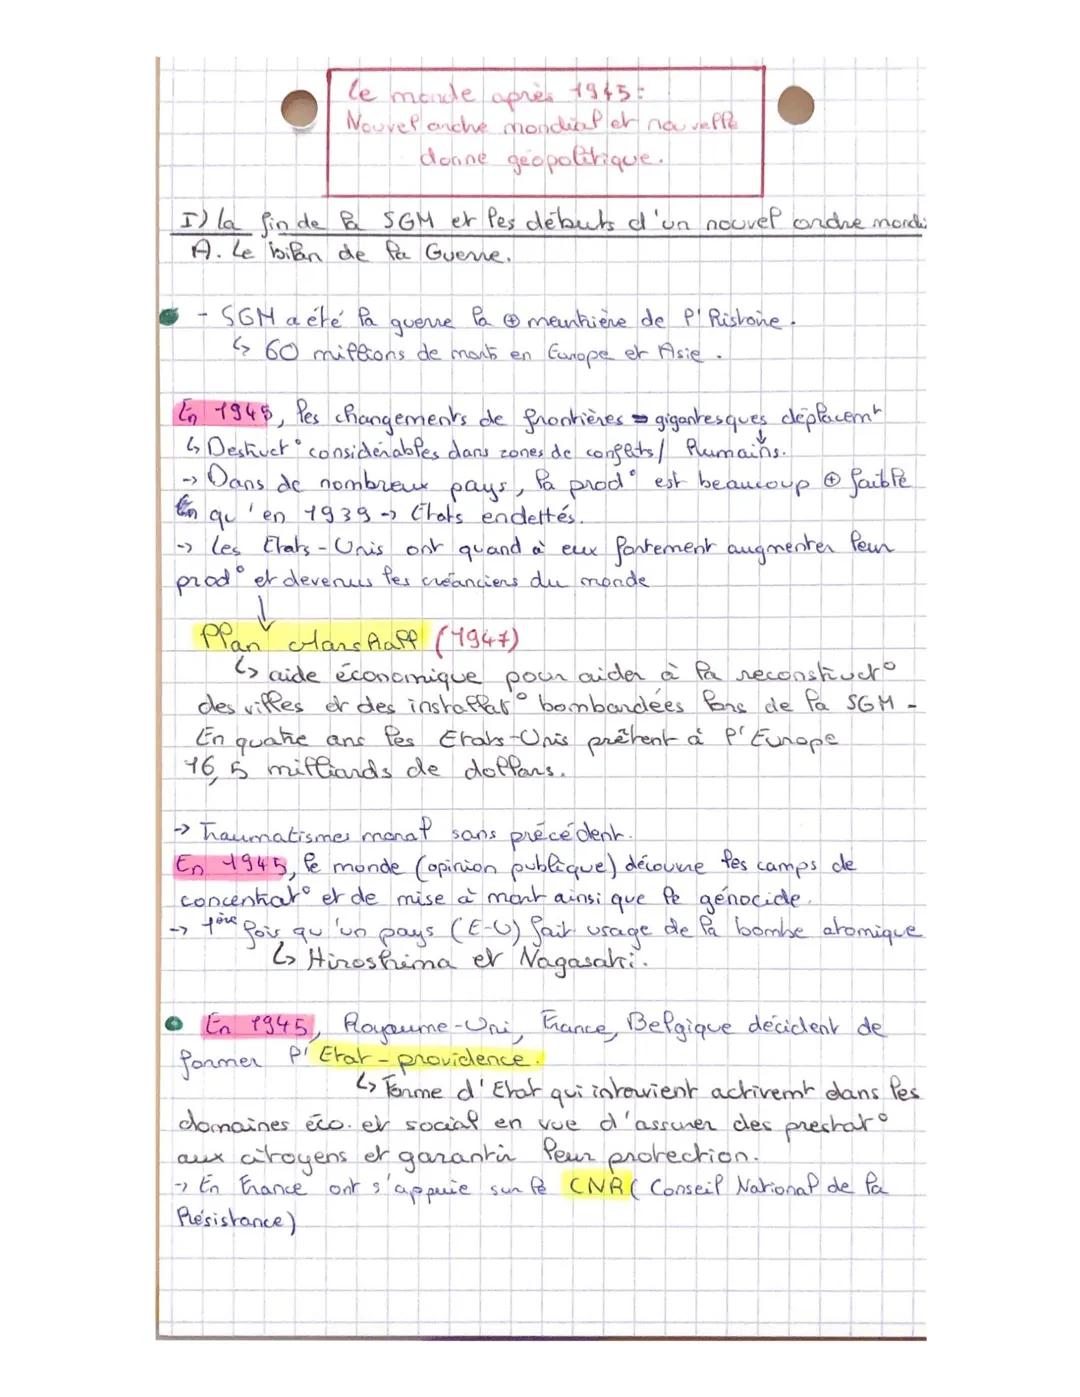 Le monde après 1945:
Nouvel ordre mondial et nouvelle
donne géopolitique.
I) la fin de la SGM et les débuts d'un nouvel ordre mondi
A. Le bilan de la Guerre.
- SGM a été la guerre la ⊕ meurtrière de l'Histoire.
↳ 60 millions de morts en Europe et Asie.
En 1945, les changements de frontières → gigantesques déplacemt
↳ Destruct° considérables dans zones de conflits / humains.
→ Dans de nombreux pays, la prod° est beaucoup ⊕ faible
qu'en 1939 → Etats endettés.
→ Les Etats-Unis ont quand à eux fortement augmenter leur
prod° et devenus les créanciers du monde
↓
Plan Marshall (1947)
↳ aide économique pour aider à la reconstruct°
des villes et des installat° bombardées lors de la SGM -
En quatre ans les Etats-Unis prêtent à l'Europe
16,5 milliards de dollars.
→ Traumatismes moral sans précédent.
En 1945, le monde (opinion publique) découvre les camps de
concentrat° et de mise à mort ainsi que le génocide.
→ 1ère fois qu'un pays (E-U) fait usage de la bombe atomique
↳ Hiroshima et Nagasaki.
En 1945, Royaume-Uni, France, Belgique décident de
former l'Etat-providence.
↳ Forme d'Etat qui intervient activemt dans les
domaines éco. et social en vue d'assurer des prestat°
aux citoyens et garantir leur protection.
→ En France ont s'appuie sur le CNR (Conseil National de la
Résistance)